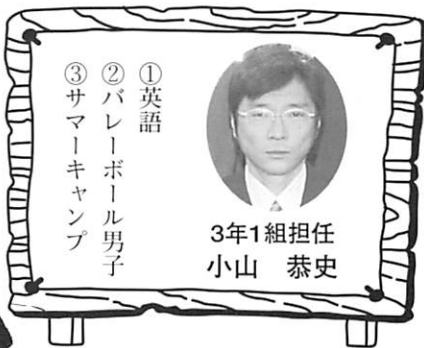 ①英語
②バレーボール男子
③サマーキャンプ
3年1組担任
小山 恭史